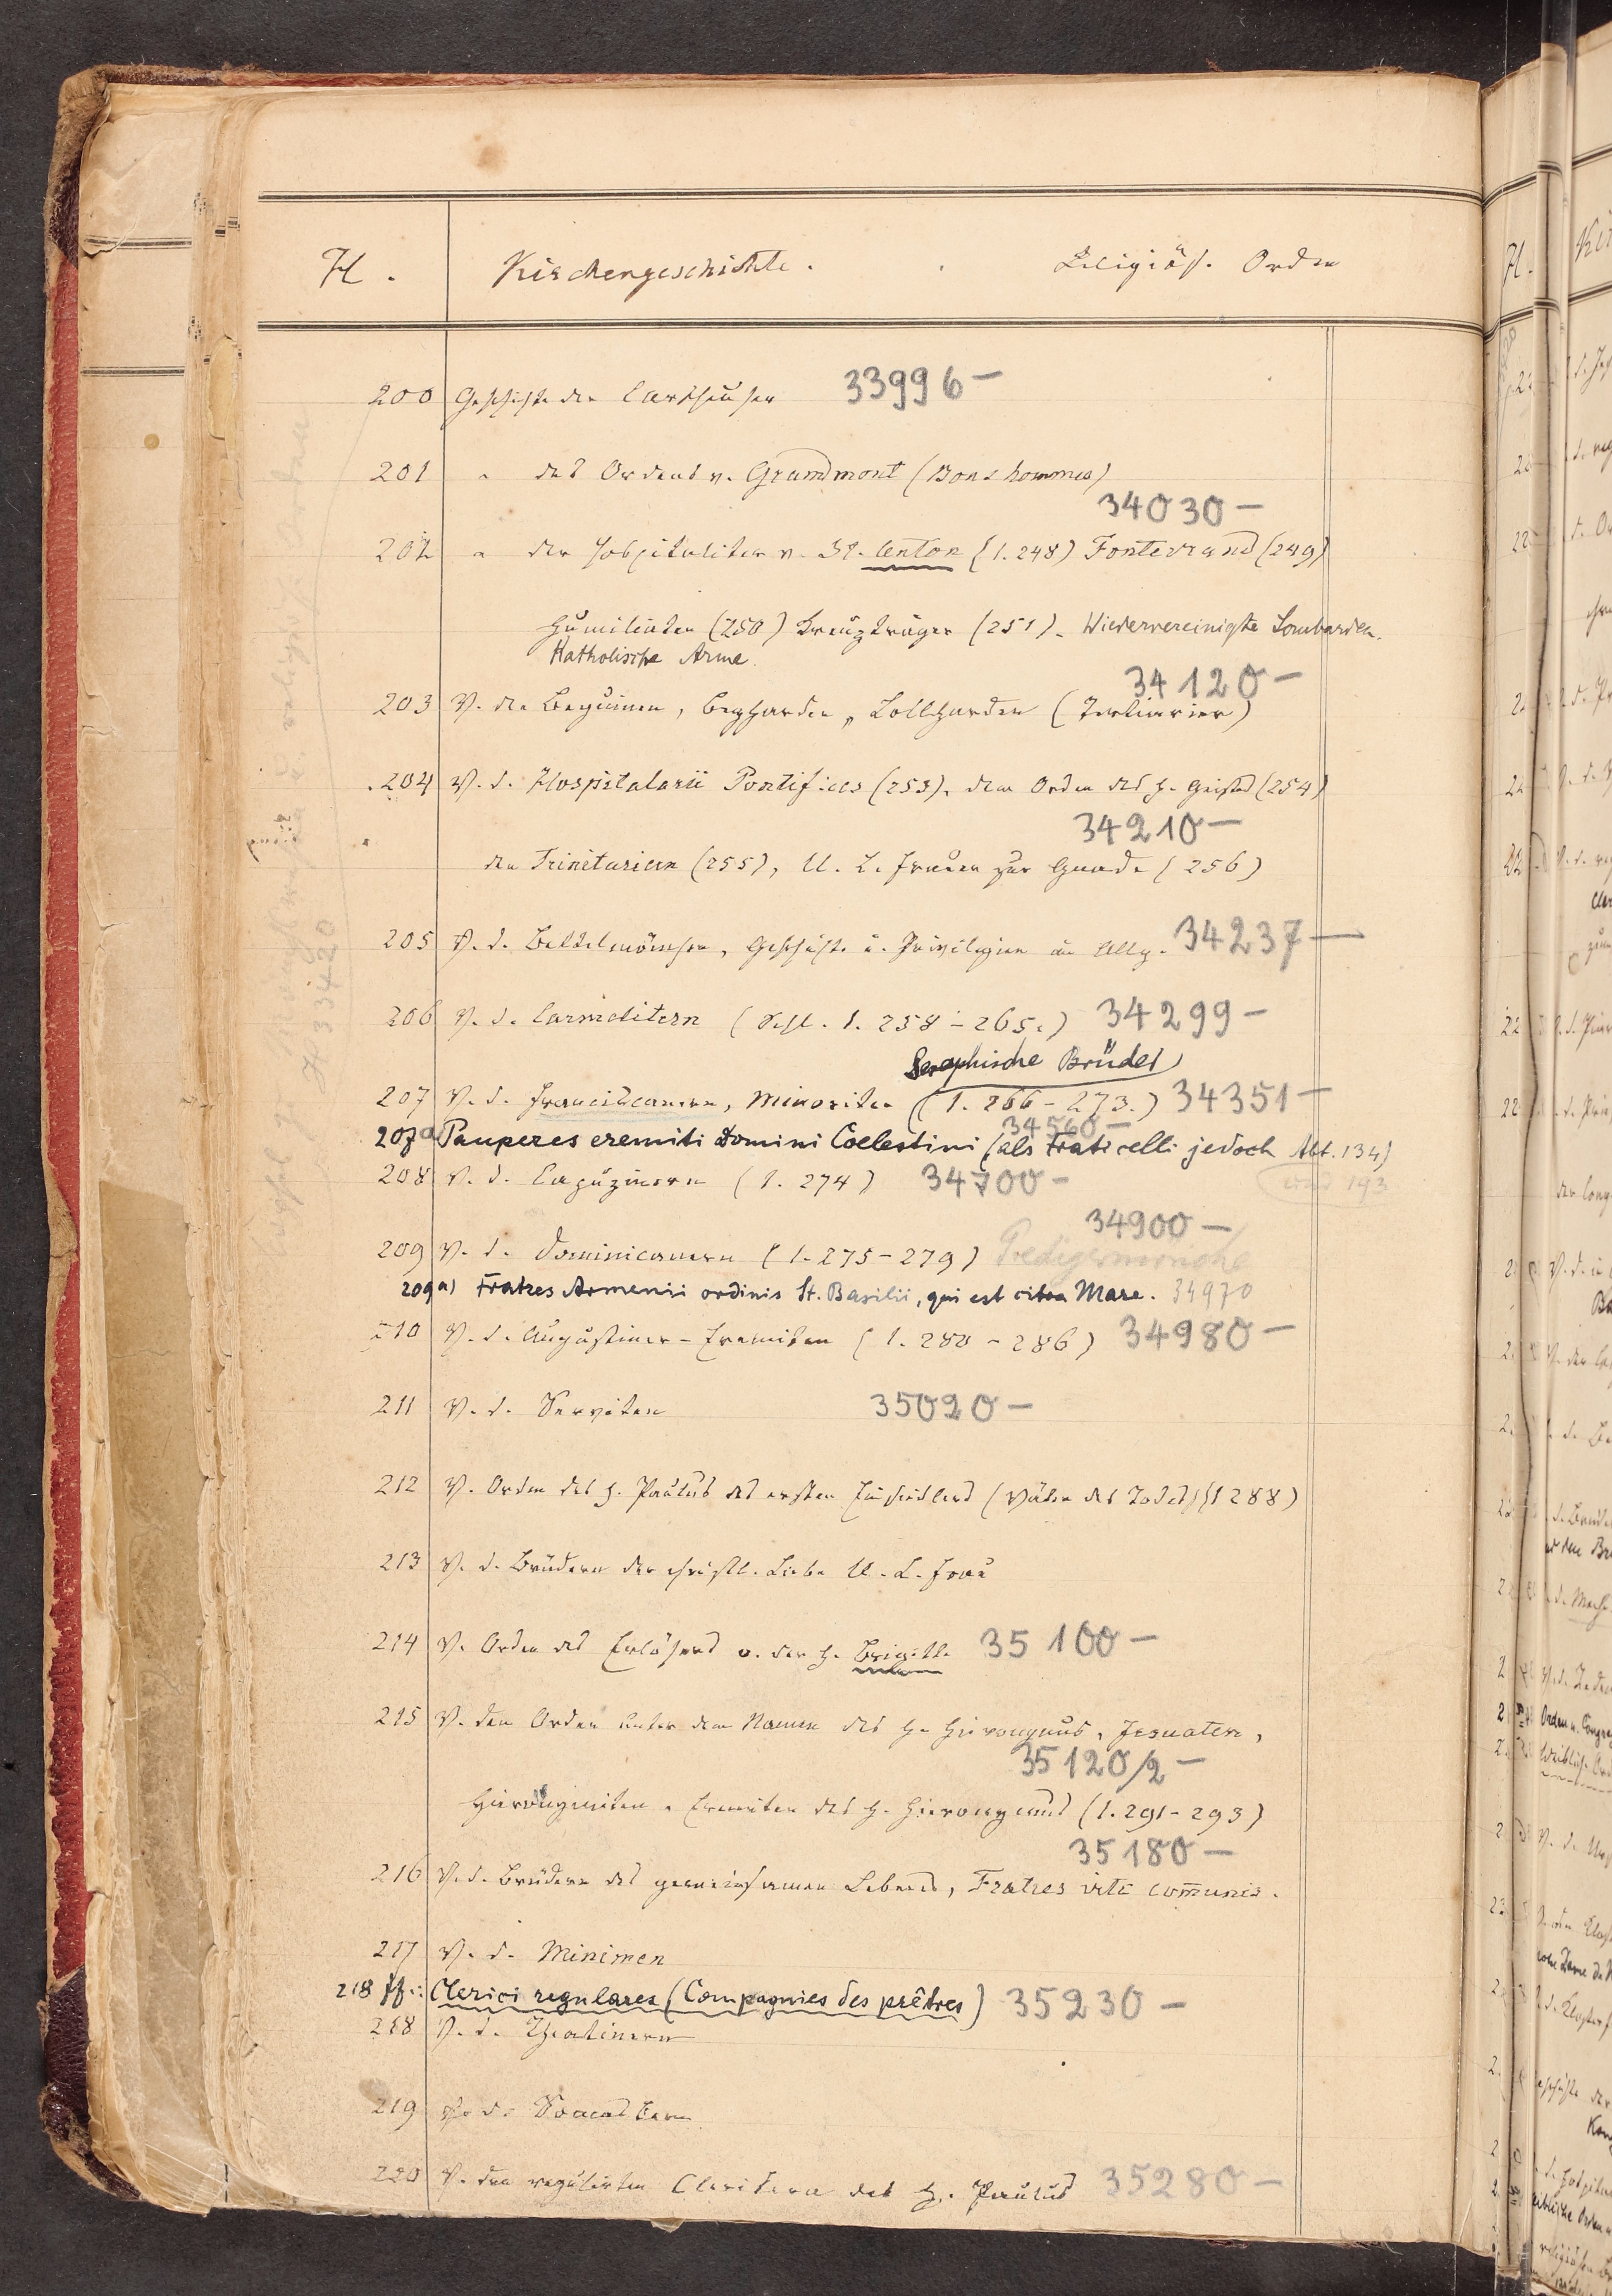 H. Kirchengeschichte. Religiös. Orden
200 Geschichte der Carthäuser 33996 —
201 " des Ordens v. Grandmont (Bons hommes)
34030 —
202 " der Hospitaliter v. St. Anton (1.248) Fontevraud (249)
Humiliaten (250) Kreuzträger (251). Wiedervereinigte Lombarden.
Katholische Arme.
34120 —
203 V. den Beguinen, Begharden, Lollharden (Tertiarier)
204 V. d. Hospitalarii Pontifices (253), dem Orden des h. Geistes (254)
34210 —
den Trinitariern (255), U. L. Frauen zur Gnade (256)
205 V. d. Bettelmönchen, Geschichte u. Privilegien im Allg. 34237 —
206 V. d. Carmelitern (Schl. 1. 258 – 265.) 34299 —
Seraphische Brüder
207 V. d. Franciscanern, Minoriten (1. 266 – 273.) 34351 —
34560 —
207a Pauperes eremiti Domini Coelestini (als Fraticelli jedoch Abt. 134)
und 193
208 V. d. Capuzinern (1. 274) 34700 —
34900 —
209 V. d. Dominicanern (1. 275 – 279) Predigermönche
209a) Fratres Armenii ordinis St. Basilii, qui est citra Mare. 34970
210 V. d. Augustiner-Eremiten (1. 280 – 286) 34980 —
211 V. d. Serviten 35020 —
212 V. Orden des h. Paulus des ersten Einsiedlers (Väter des Todes) (1 288)
213 V. d. Brüdern der christl. Liebe U. L. Frau
214 V. Orden des Erlösers o. der h. Brigitte 35100 —
215 V. den Orden unter dem Namen des h. Hieronymus, Jesuaten,
35120/2 —
Hieronymiten, Eremiten des h. Hieronymus (1. 291 – 293)
35180 —
216 V. d. Brüdern des gemeinsamen Lebens, Fratres vite com̄unis.
217 V. d. Minimen
218 ff: Clerici regulares (Compagnies des prêtres) 35230 —
218 V. d. Theatinern
219 V. d. Somaskern
220 V. den regulirten Clerikern des h. Paulus 35280 —